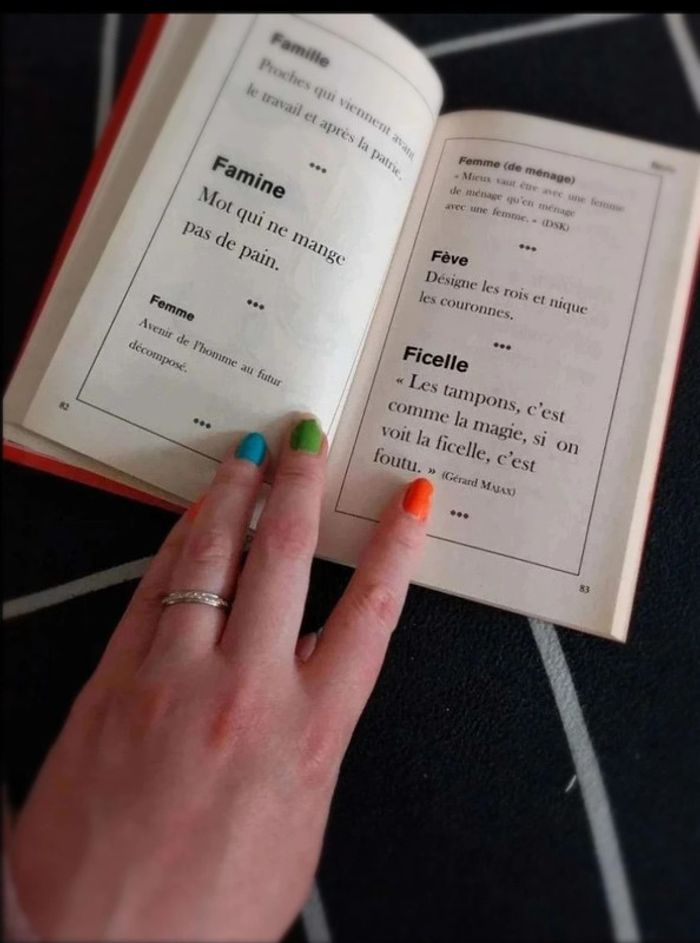 Famille
Proches qui viennent avant
le travail et après la patrie.
•••
Famine
Mot qui ne mange
pas de pain.
•••
Femme
Avenir de l'homme au futur
décomposé.
•••
82
Femme (de ménage)
« Mieux vaut être avec une femme
de ménage qu'en ménage
avec une femme. » (DSK)
•••
Fève
Désigne les rois et nique
les couronnes.
•••
Ficelle
« Les tampons, c'est
comme la magie, si on
voit la ficelle, c'est
foutu. » (Gérard MAJAX)
•••
83